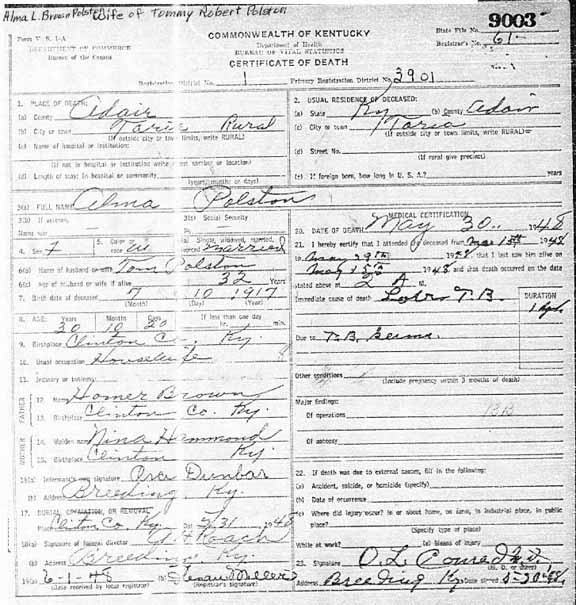 Alma L. Brown Polston Wife of Tommy Robert Polston
Form V. S. 1-A
DEPARTMENT OF COMMERCE
Bureau of the Census
COMMONWEALTH OF KENTUCKY
Department of Health
BUREAU OF VITAL STATISTICS
CERTIFICATE OF DEATH
9003
State File No.
Registrar's No. 61
Registration District No. 1 Primary Registration District No. 3901
1. PLACE OF DEATH:
(a) County Adair
(b) City or town Rural
(If outside city or town limits, write RURAL)
(c) Name of hospital or institution:
(If not in hospital or institution write street number or location)
(d) Length of stay: In hospital or community
(years/months or days)
2. USUAL RESIDENCE OF DECEASED:
(a) State Ky (b) County Adair
(c) City or town
(If outside city or town limits, write RURAL)
(d) Street No.
(If rural give precinct)
(e) If foreign born, how long in U. S. A.? years
3(a) FULL NAME Alma Polston
3(b) If veteran, Name war
3(c) Social Security No.
4. Sex F
5. Color or race W
6(a) Single, widowed, married, divorced married
6(b) Name of husband or wife Tom Polston
6(c) Age of husband or wife if alive 32 Years
7. Birth date of deceased 7 10 1917
(Month) (Day) (Year)
8. AGE: Years Months Days If less than one day
30 10 20 hr. min.
9. Birthplace Clinton Co. Ky.
10. Usual occupation Housewife
11. Industry or business
FATHER
12. Name Homer Brown
13. Birthplace Clinton Co. Ky.
MOTHER
14. Maiden name Nina Hammond
15. Birthplace Clinton Ky
16(a) Informant's own signature Dunbar
(b) Address Breeding, Ky.
17. BURIAL, CREMATION, OR REMOVAL
Place Clinton Co. Ky. Date 5/31 1948
18(a) Signature of funeral director Roach
(b) Address Breeding Ky.
19(a) 6-1-48 (b) Miller
(Date received by local registrar) (Registrar's signature)
MEDICAL CERTIFICATION
20. DATE OF DEATH May 30, 1948
21. I hereby certify that I attended the deceased from 1948
to May 29th 1948, that I last saw him alive on
May 1948 and that death occurred on the date
stated above at 2 A M.
Immediate cause of death Lobar T.B.
DURATION
Due to T.B. Germs
Other conditions
(Include pregnancy within 3 months of death)
Major findings:
Of operations
13B
Of autopsy
22. If death was due to external causes, fill in the following:
(a) Accident, suicide, or homicide (specify)
(b) Date of occurrence
(c) Where did injury occur? in or about home, on farm, in industrial place, in public place?
(Specify type of place)
While at work? (e) Means of injury
23. Signature O. L.
(M. D. or other)
Address Breeding Ky Date signed 5-30-48